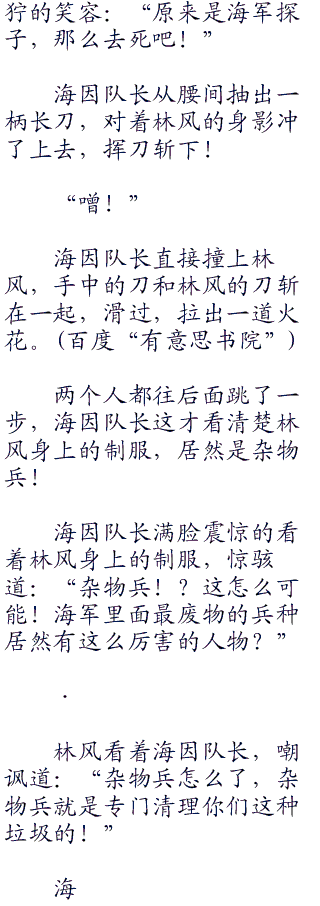 狞的笑容：“原来是海军探
子，那么去死吧！”
海因队长从腰间抽出一
柄长刀，对着林风的身影冲
了上去，挥刀斩下！
“噌！”
海因队长直接撞上林
风，手中的刀和林风的刀斩
在一起，滑过，拉出一道火
花。(百度“有意思书院”)
两个人都往后面跳了一
步，海因队长这才看清楚林
风身上的制服，居然是杂物
兵！
海因队长满脸震惊的看
着林风身上的制服，惊骇
道：“杂物兵！？这怎么可
能！海军里面最废物的兵种
居然有这么厉害的人物？”
.
林风看着海因队长，嘲
讽道：“杂物兵怎么了，杂
物兵就是专门清理你们这种
垃圾的！”
海